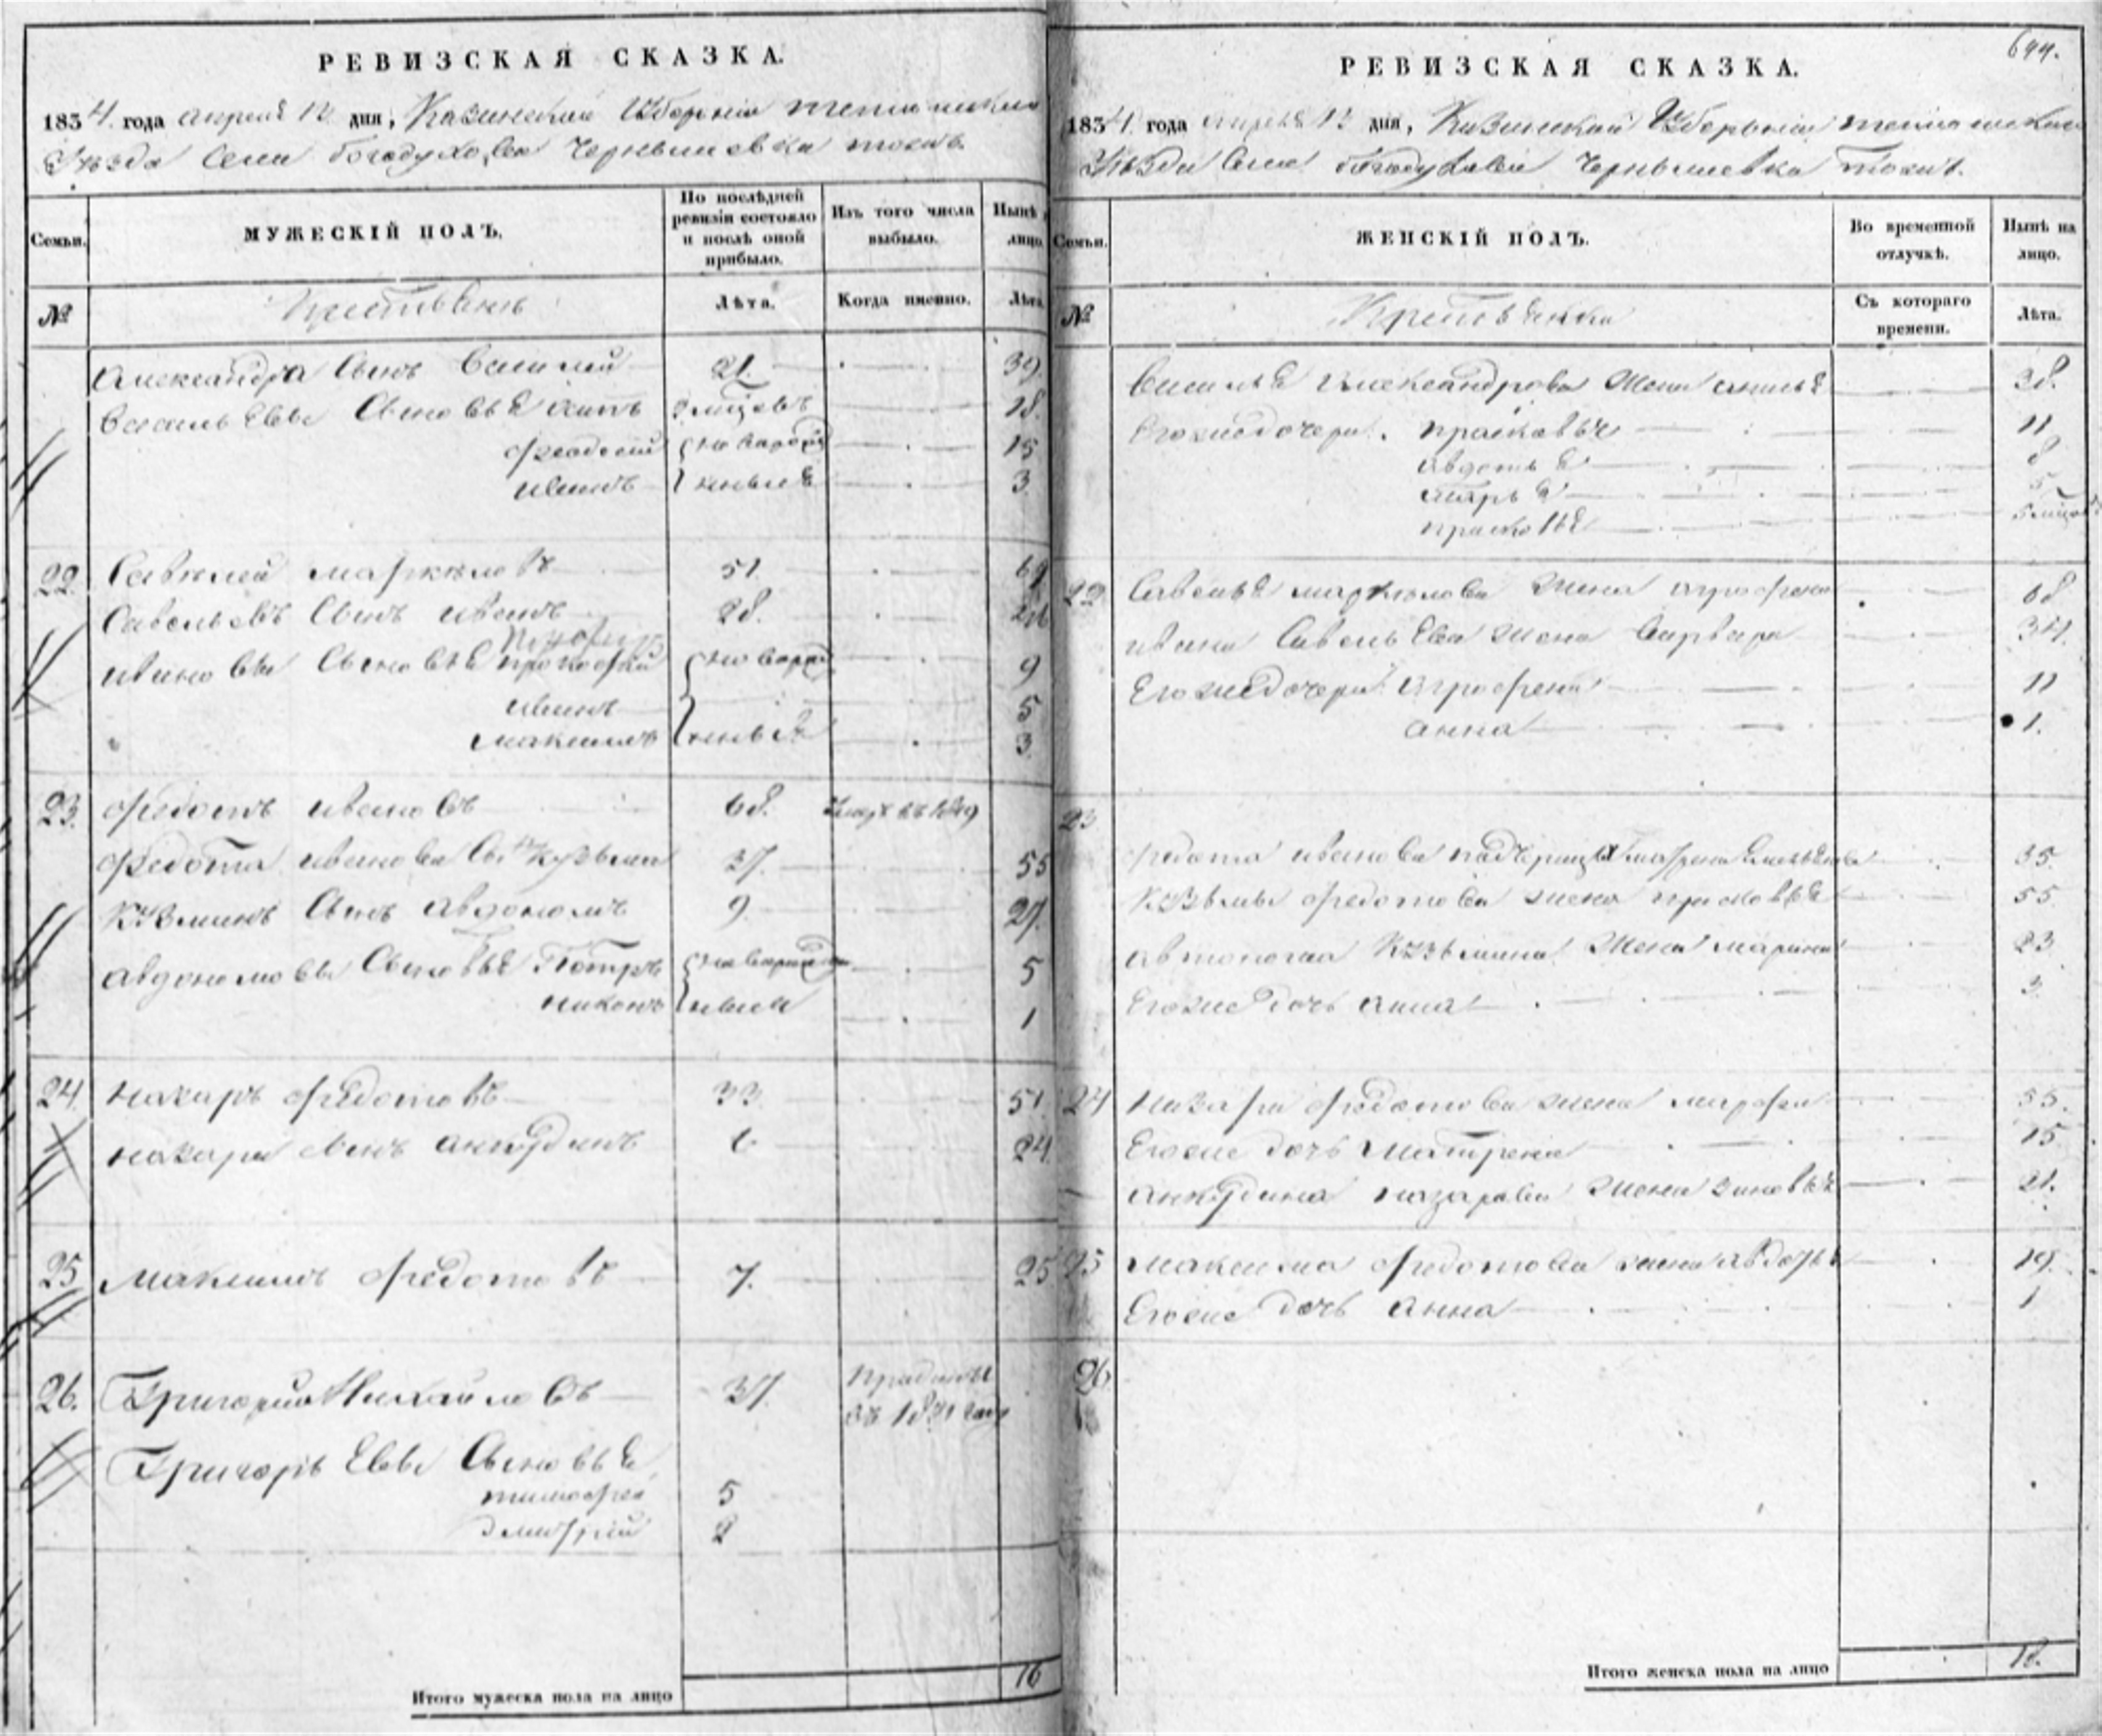 РЕВИЗСКАЯ СКАЗКА.
1834 года апреля 12 дня, Казанской Губернии
Уезда Села Богодухова Чернышевка тожъ.
Семьи. МУЖЕСКІЙ ПОЛЪ. По послѣдней ревизіи состояло и послѣ оной прибыло. Изъ того числа выбыло. Нынѣ лицо.
№ Крестьянъ Лѣта. Когда именно. Лѣта
Александра Сынъ Василей 21. 39
Васильевы Сыновья Осипъ 18.
Феодосій новорож 15
иванъ 3
22. Савелей маркеловъ 51. 69
Савельевъ Сынъ иванъ 28.
ивановы Сыновья прокофий новорож 9
иванъ 5
максимъ 3
23. федотъ ивановъ 68.
федота иванова Сынъ кузьма 37. 55
Кузминъ Сынъ Авдокомъ 9. 27.
Сыновья Петръ 5
никонъ 1
24. назаръ федотовъ 33 51
назара сынъ анкудинъ 6 24.
25 максимъ федотовъ 7. 25
26. Григорий Михайловъ 37.
Григорьевы Сыновья
тимофей 5
дмитрій 2
Итого мужеска пола на лицо 16
644.
РЕВИЗСКАЯ СКАЗКА.
1834 года апреля 12 дня, Казанской Губерніи
Уезда Села Богодухова Чернышевка Тожъ.
Семьи. ЖЕНСКІЙ ПОЛЪ. Во временной отлучкѣ. Нынѣ на лицо.
№ Крестьянка Съ котораго времени. Лѣта.
Василья Александрова Жена 38.
Егожедочери. прасковья 11
авдотья 8
марья 5
прасковья
22 Савелья маркелова жена агрофена 68
ивана Савельева жена варвара 34.
Егожедочери агрофена 11
анна 1.
23
федота иванова падчерица 35.
Кузьмы федотова жена прасковья 55
автонома Кузьмина Жена марина 23
Егоже дочь анна 3
24 назара федотова жена марфа 55.
Егоже дочь матрена 15
анкудина назарова жена зиновья 21.
25 максима федотова жена авдотья 19.
Егоже дочь анна 1
26
Итого женска пола на лицо 18.